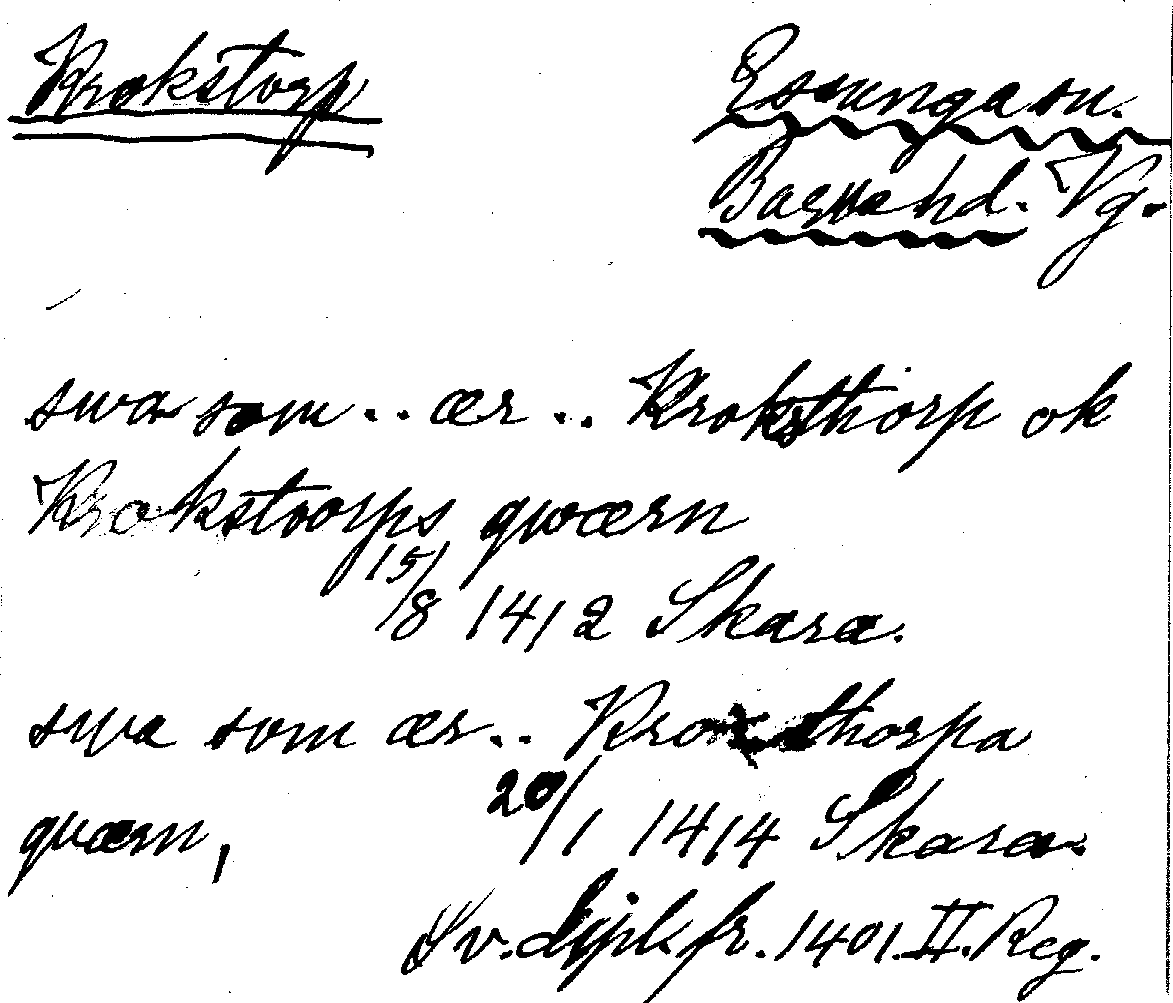 Krokstorp
Essunga sn.
Barne hd. Vg.
swa som .. ær .. Kroksthorp ok
Krokstoorps qwærn
15/8 1412 Skara.
swa som ær .. thorpa
qværn, 20/1 1414 Skara.
Sv. dipl. fr. 1401. II. Reg.